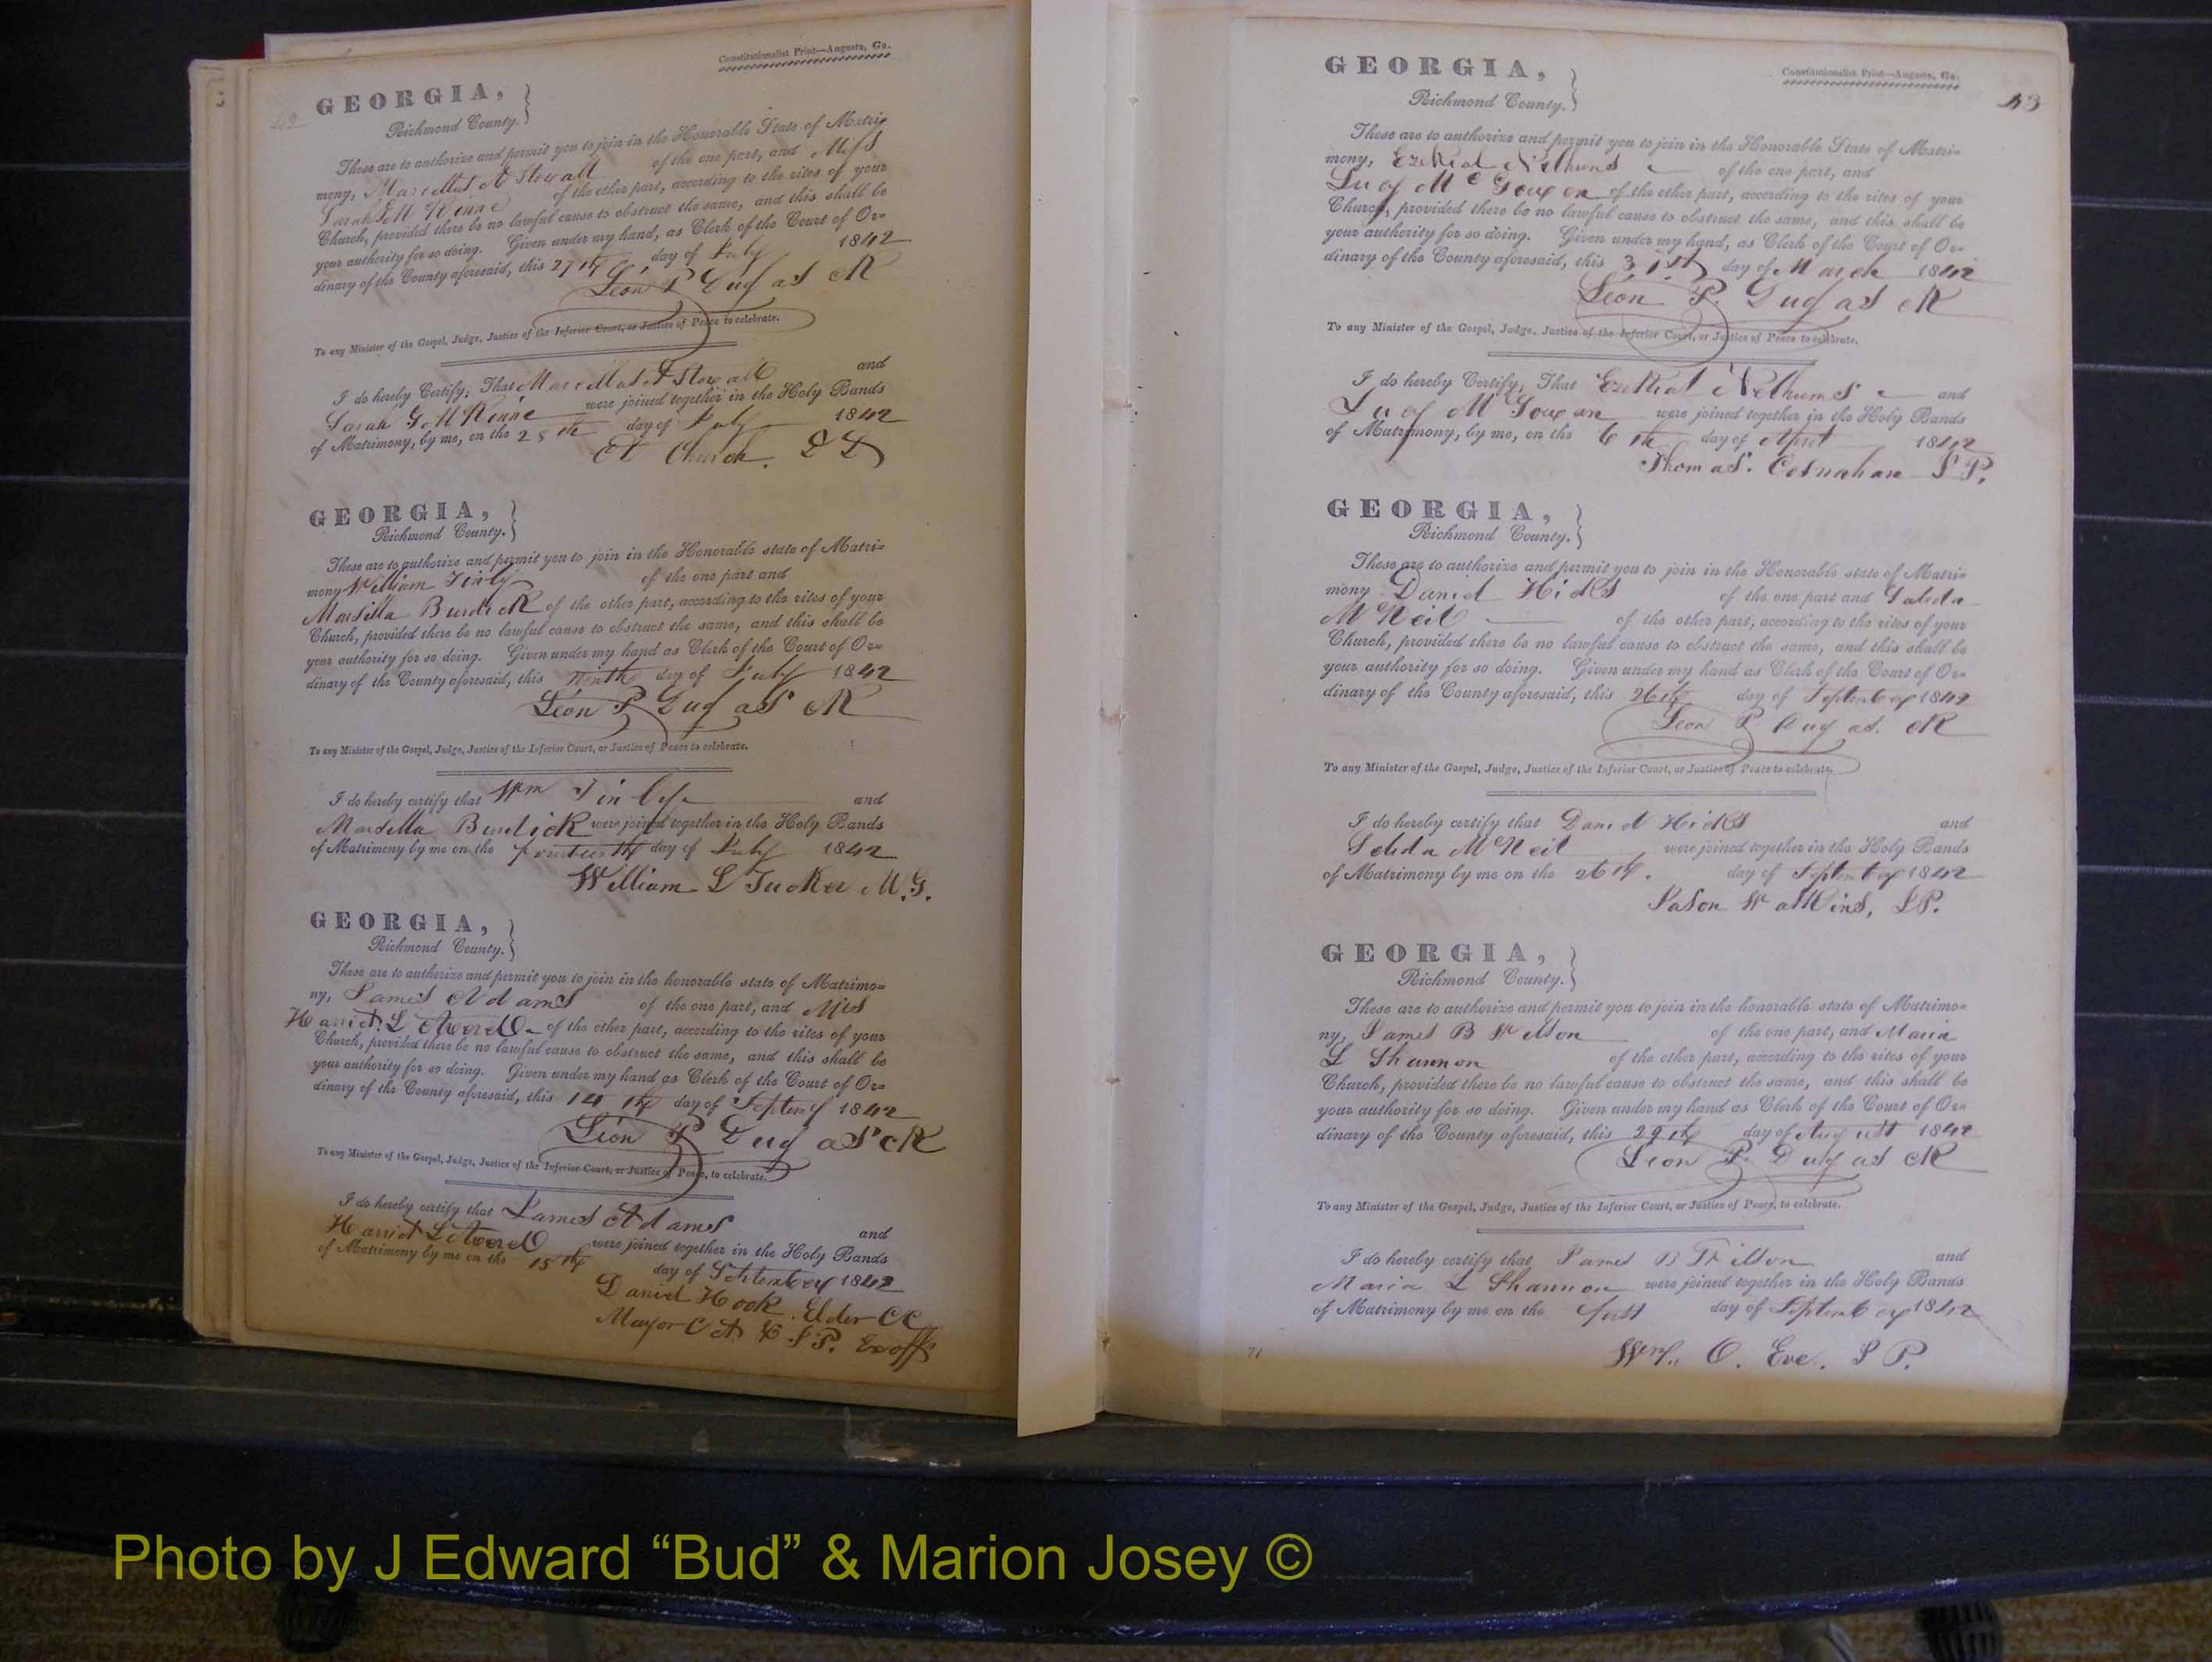 Constitutionalist Print—Augusta, Ga.
42
GEORGIA,
Richmond County.
These are to authorize and permit you to join in the Honorable State of Matri-
mony, Marcellus A Stovall of the one part, and Miss
Sarah G McKinne of the other part, according to the rites of your
Church, provided there be no lawful cause to obstruct the same, and this shall be
your authority for so doing. Given under my hand, as Clerk of the Court of Or-
dinary of the County aforesaid, this 27th day of July 1842
Leon P Dugas Clk
To any Minister of the Gospel, Judge, Justice of the Inferior Court, or Justice of Peace to celebrate.
I do hereby Certify, That Marcellus A Stovall and
Sarah G McKinne were joined together in the Holy Bands
of Matrimony, by me, on the 28th day of July 1842
Church. DD
GEORGIA,
Richmond County.
These are to authorize and permit you to join in the Honorable state of Matri-
mony William Tinly of the one part and
Marsella Burdick of the other part, according to the rites of your
Church, provided there be no lawful cause to obstruct the same, and this shall be
your authority for so doing. Given under my hand as Clerk of the Court of Or-
dinary of the County aforesaid, this ninth day of July 1842
Leon P Dugas Clk
To any Minister of the Gospel, Judge, Justice of the Inferior Court, or Justice of Peace to celebrate.
I do hereby certify that Wm Tinly and
Marsella Burdick were joined together in the Holy Bands
of Matrimony by me on the fourteenth day of July 1842
William L Tucker M.G.
GEORGIA,
Richmond County.
These are to authorize and permit you to join in the honorable state of Matrimo-
ny, James Adams of the one part, and Miss
Harriet L of the other part, according to the rites of your
Church, provided there be no lawful cause to obstruct the same, and this shall be
your authority for so doing. Given under my hand as Clerk of the Court of Or-
dinary of the County aforesaid, this 14th day of Septemr 1842
Leon P Dugas Clk
To any Minister of the Gospel, Judge, Justice of the Inferior Court, or Justice of Peace, to celebrate.
I do hereby certify that James Adams and
Harriet L were joined together in the Holy Bands
of Matrimony by me on the 15th day of September 1842
Daniel Hook. Elder CC
Mayor C A & J P. Exoff
Constitutionalist Print—Augusta, Ga.
43
GEORGIA,
Richmond County.
These are to authorize and permit you to join in the Honorable State of Matri-
mony, Ezekial Nethums of the one part, and
Lucy McGowen of the other part, according to the rites of your
Church, provided there be no lawful cause to obstruct the same, and this shall be
your authority for so doing. Given under my hand, as Clerk of the Court of Or-
dinary of the County aforesaid, this 31st day of March 1842
Leon P. Dugas Clk
To any Minister of the Gospel, Judge, Justice of the Inferior Court, or Justice of Peace to celebrate.
I do hereby Certify, That Ezekial Nethums and
Lucy McGowen were joined together in the Holy Bands
of Matrimony, by me, on the 6th day of April 1842
Thomas. Cosnahan J P.
GEORGIA,
Richmond County.
These are to authorize and permit you to join in the Honorable state of Matri-
mony Daniel Hicks of the one part and
McNeil of the other part, according to the rites of your
Church, provided there be no lawful cause to obstruct the same, and this shall be
your authority for so doing. Given under my hand as Clerk of the Court of Or-
dinary of the County aforesaid, this 26th day of September 1842
Leon P Dugas. Clk
To any Minister of the Gospel, Judge, Justice of the Inferior Court, or Justice of Peace to celebrate.
I do hereby certify that Daniel Hicks and
McNeil were joined together in the Holy Bands
of Matrimony by me on the 26th. day of September 1842
Jason Watkins, JP.
GEORGIA,
Richmond County.
These are to authorize and permit you to join in the honorable state of Matrimo-
ny, James B Wilson of the one part, and Maria
L Shannon of the other part, according to the rites of your
Church, provided there be no lawful cause to obstruct the same, and this shall be
your authority for so doing. Given under my hand as Clerk of the Court of Or-
dinary of the County aforesaid, this 29th day of August 1842
Leon P. Dugas Clk
To any Minister of the Gospel, Judge, Justice of the Inferior Court, or Justice of Peace, to celebrate.
I do hereby certify that James B Wilson and
Maria L Shannon were joined together in the Holy Bands
of Matrimony by me on the first day of September 1842
Wm. O. Eve. J P.
71
Photo by J Edward “Bud” & Marion Josey ©